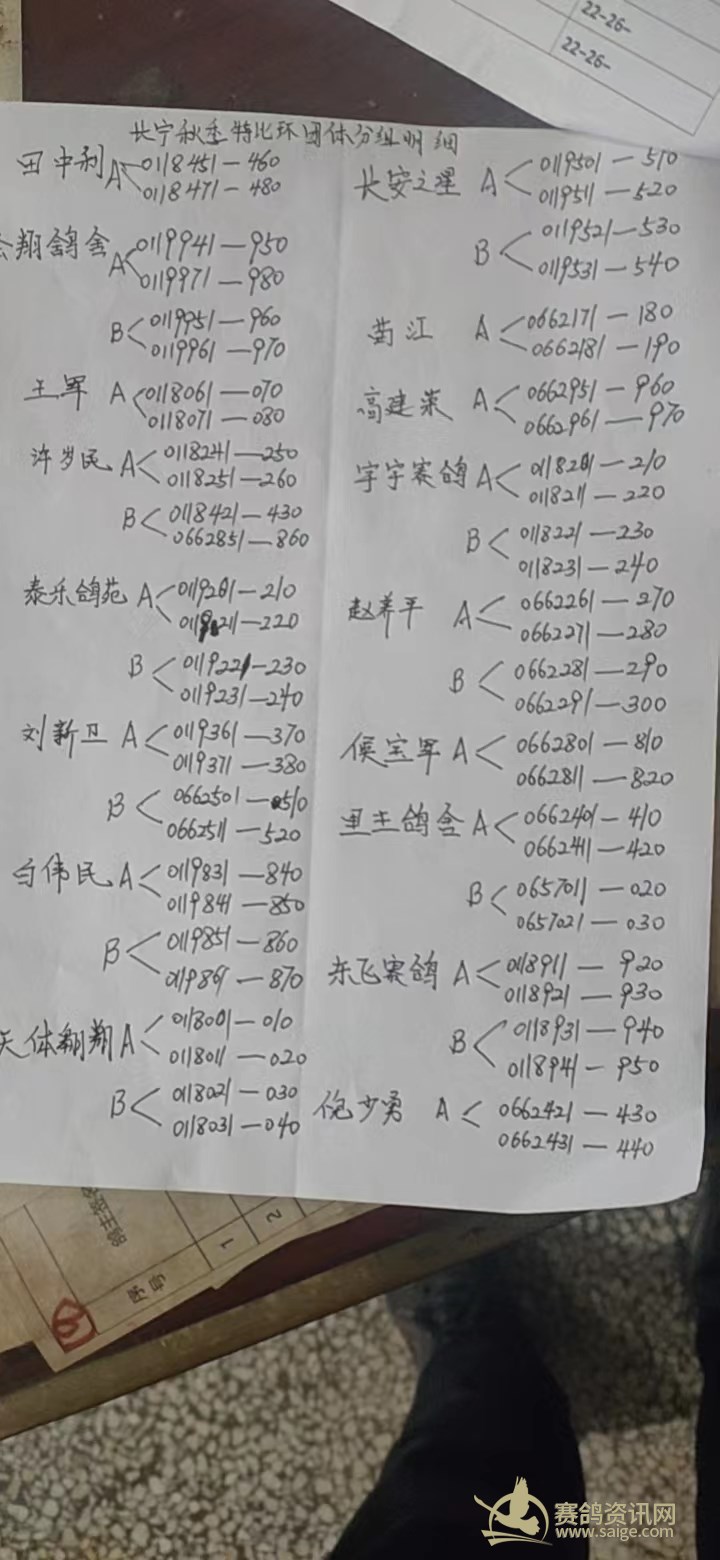 22-26-
22-26-
长宁秋季特比环团体分组明细
田中利 A 0118451—460
0118471—480
翔鸽舍 A 0119941—950
0119971—980
B 0119951—960
0119961—970
王军 A 0118061—070
0118071—080
许岁民 A 0118241—250
0118251—260
B 0118421—430
0662851—860
泰乐鸽苑 A 0119201—210
0119211—220
B 0119221—230
0119231—240
刘新卫 A 0119361—370
0119371—380
B 0662501—510
0662511—520
白伟民 A 0119831—840
0119841—850
B 0119851—860
0119861—870
天体翱翔 A 0118001—010
0118011—020
B 0118021—030
0118031—040
长安之星 A 0119501—510
0119511—520
B 0119521—530
0119531—540
苗江 A 0662171—180
0662181—190
高建荣 A 0662951—960
0662961—970
宇宇赛鸽 A 0118201—210
0118211—220
B 0118221—230
0118231—240
赵养平 A 0662261—270
0662271—280
B 0662281—290
0662291—300
侯宝军 A 0662801—810
0662811—820
里主鸽舍 A 0662401—410
0662411—420
B 0657011—020
0657021—030
东飞赛鸽 A 0118911—920
0118921—930
B 0118931—940
0118941—950
倪少勇 A 0662421—430
0662431—440
序号
1
2
赛鸽资讯网
www.saige.com